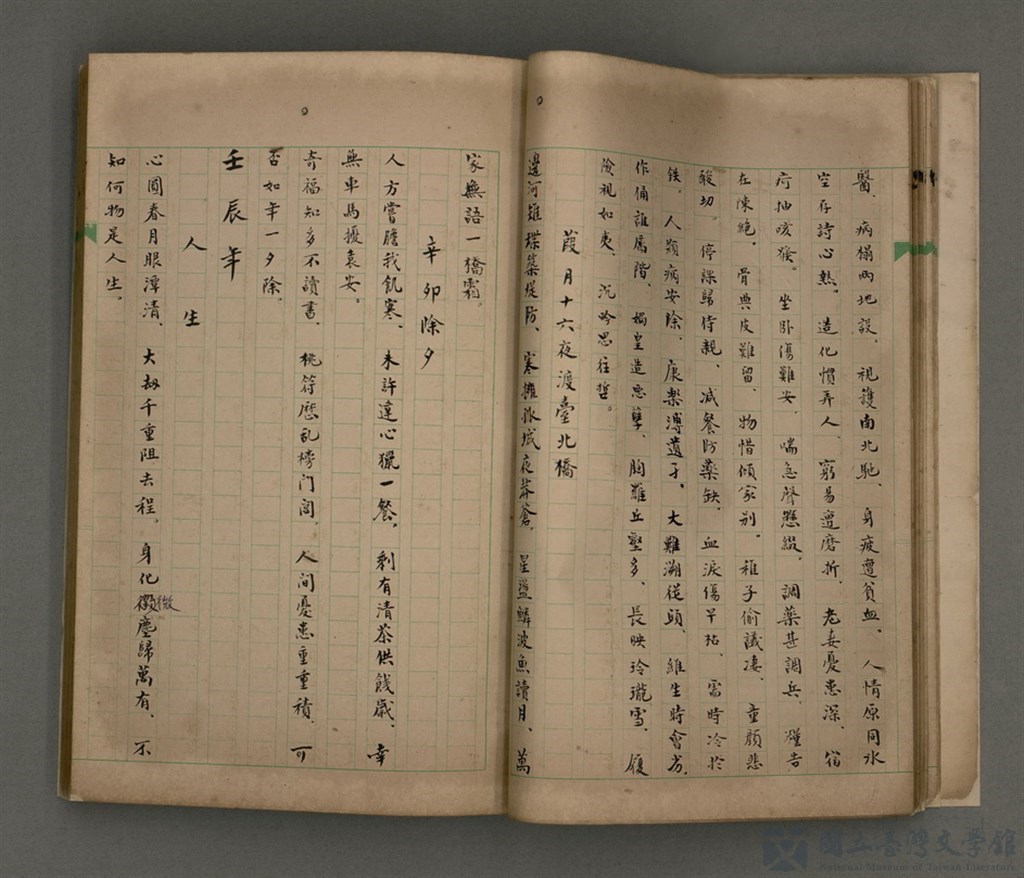 醫、病榻兩地設、視護南北馳、身疲遭貧血、人情原同冰
空存詩心熱。造化慣弄人、窮易遭磨折、老妻憂患深、宿
疴抽咳猴。坐卧傷難安、喘急聲懸綴、調藥甚調兵、糧告
在陳絕。骨與皮難留、物惜傾家别。稚子偷議凄、童顏悲
酸切。停課歸侍親、减餐防藥缺。血淚傷早枯、需時冷於
鉄。人類病安除、康樂溥遺孑。大難溯從頭、維生時會劣、
作俑誰厲階、媧皇造惡孽、胸雖丘壑多、長映玲瓏雪、履
險視如夷、沉吟思往哲。
葭月十六夜渡臺北橋
邊河雉堞築堤防、寒擁孤城夜莽蒼、星盪鱗波魚讀月、萬
家無語一橋霜。
辛卯除夕
人方嘗膽我飢寒、未許違心獵一餐、剩有清茶供餞歲、幸
無車馬擾袁安。
奇福知多不讀書、桃符厯乱榜门閭。人间憂患重重積、可
否如年一夕除。
壬辰年
人生
心圓春月眼潭清、大劫千重阻去程。身化微塵歸萬有、不
知何物是人生。
國立臺灣文學館
National Museum of Taiwan Literature